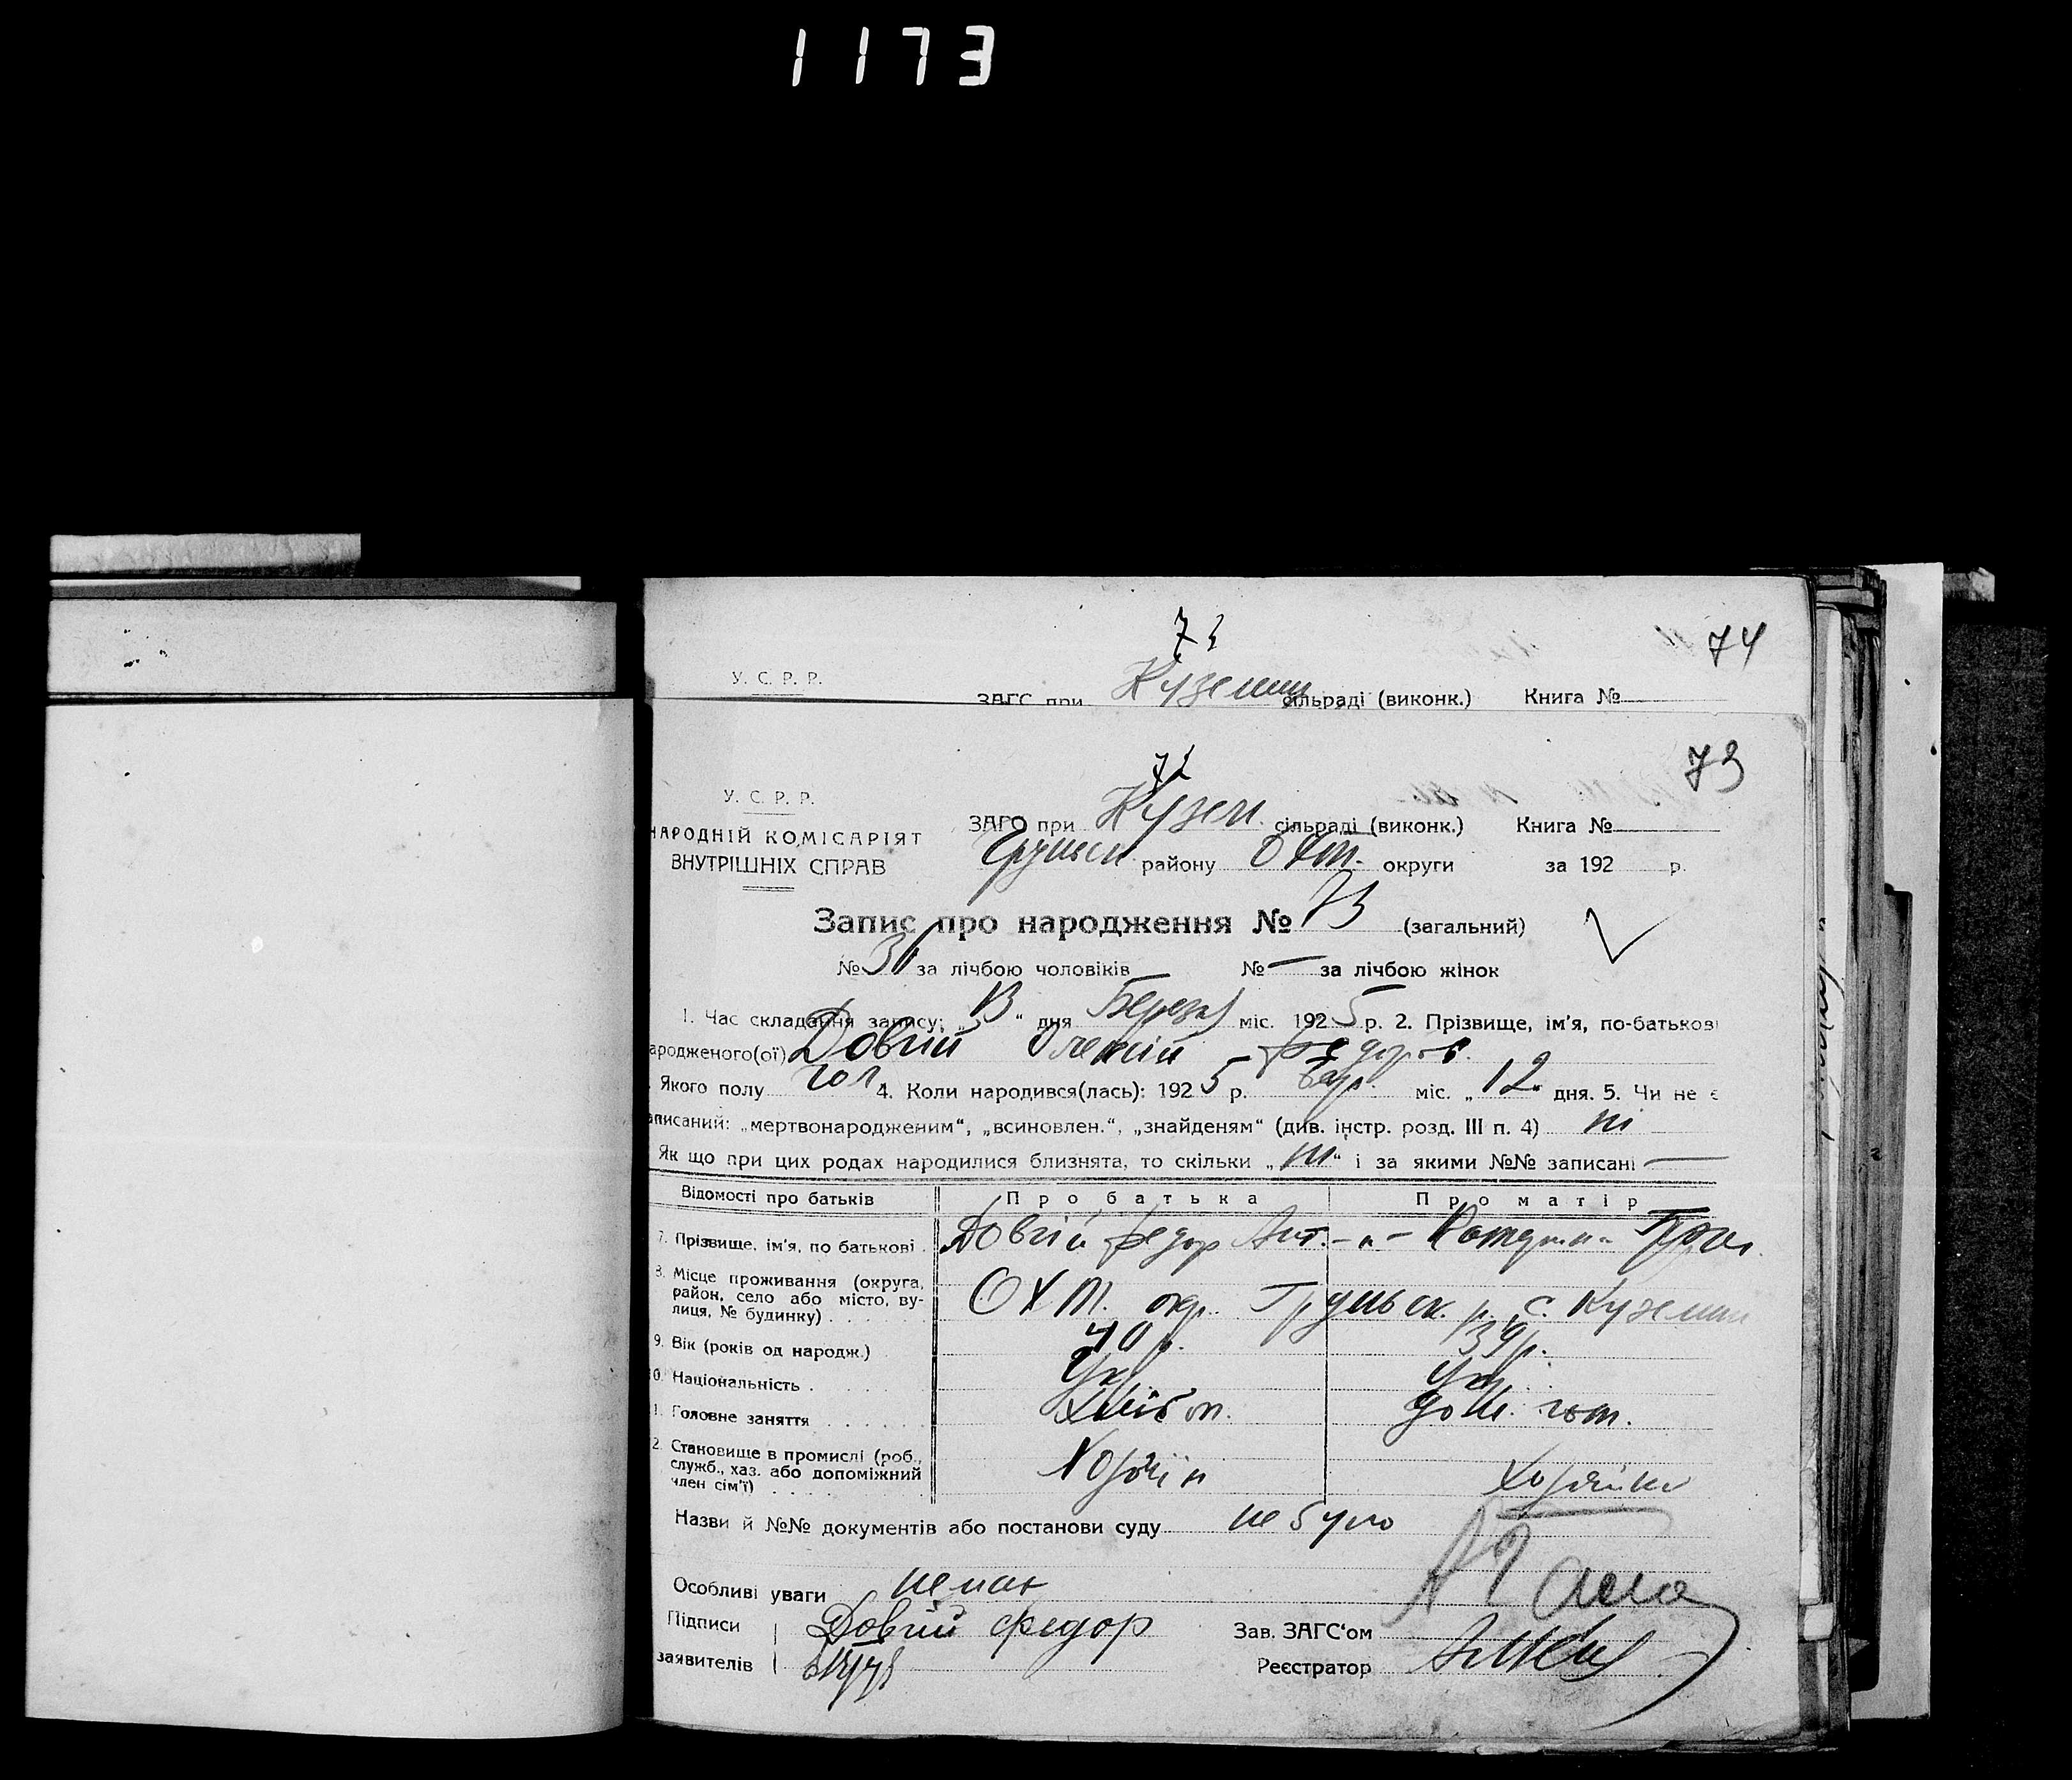 1173
73
74
У. С. Р. Р.
ЗАГС при Куземин сільраді (виконк.) Книга №
72
73
У. С. Р. Р.
НАРОДНІЙ КОМІСАРІЯТ
ВНУТРІШНІХ СПРАВ
ЗАГС при Кузем. сільраді (виконк.) Книга №
Груньск. району Охт. округи за 192 р.
Запис про народження № 73 (загальний)
№ за лічбою чоловіків № — за лічбою жінок
1. Час складання запису: „13“ дня Березня міс. 1925 р. 2. Прізвище, ім'я, по-батькові
ародженого(ої) Довгий Олексій Федоров.
Якого полу чол 4. Коли народився(лась): 1925 р. міс. „12“ дня. 5. Чи не є
аписаний: „мертвонародженим“, „всиновлен.“, „знайденям“ (див. інстр. розд. III п. 4) ні
Як що при цих родах народилися близнята, то скільки „ні“ і за якими №№ записані —
Відомості про батьків Про батька Про матір
7. Прізвище, ім'я, по батькові Довгий Федор Ант. —„—
8. Місце проживання (округа, район, село або місто, вулиця, № будинку) Охт. окр. Груньск. р. с. Куземин
9. Вік (років од народж.) 40 р. 39 р.
0. Національність Укр Укр
1. Головне заняття Хлібоп. дом. госп.
2. Становище в промислі (роб., служб., хаз. або допоміжний член сім'ї) Хозяїн Хозяйка
Назви й №№ документів або постанови суду не було
Особливі уваги немає
Підписи Довгий Федор Зав. ЗАГС'ом
заявителів Реєстратор